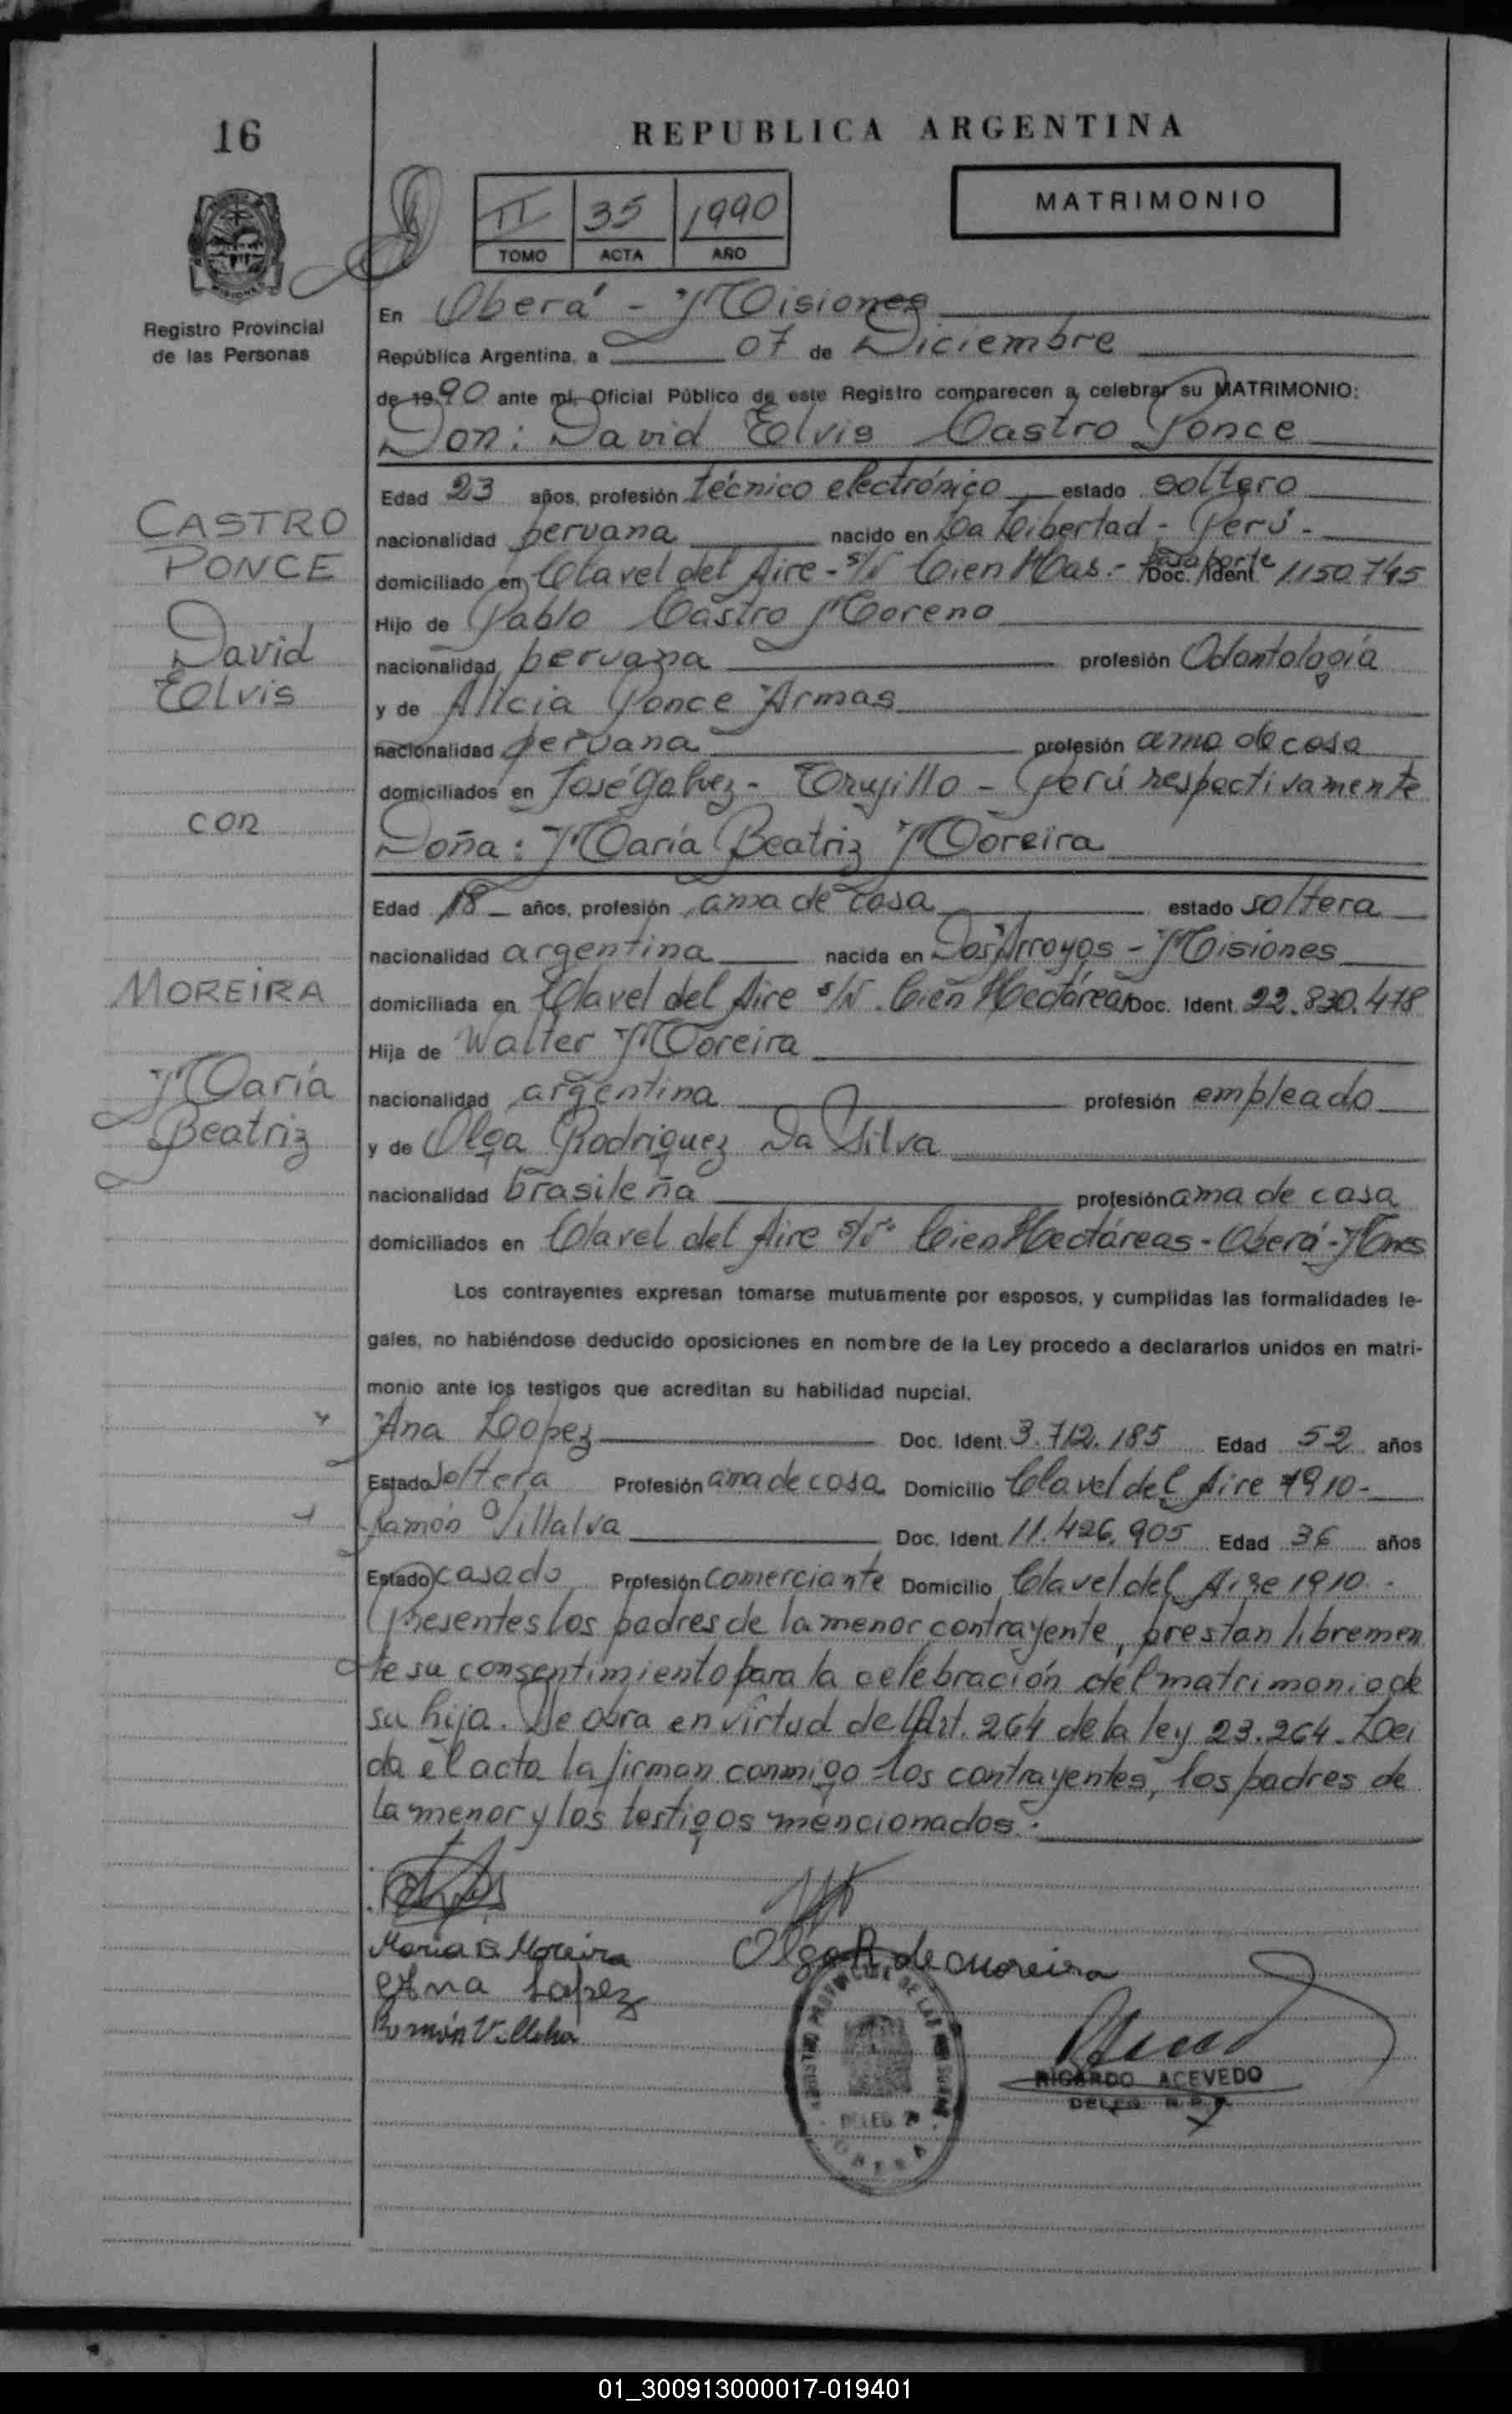 16
REPUBLICA ARGENTINA
MATRIMONIO
II 35 1990
TOMO ACTA AÑO
Registro Provincial
de las Personas
En Oberá - Misiones
República Argentina, a 07 de Diciembre
de 1990 ante mí, Oficial Público de este Registro comparecen a celebrar su MATRIMONIO:
Don: David Elvis Castro Ponce
Edad 23 años, profesión técnico electrónico estado soltero
CASTRO
PONCE
David
Elvis
nacionalidad peruana nacido en La Libertad - Perú -
domiciliado en Clavel del Aire - s/N Cien Has.- Pasaporte Doc. Ident 1150745
Hijo de Pablo Castro Moreno
nacionalidad peruana profesión Odontología
y de Alicia Ponce Armas
nacionalidad peruana profesión ama de casa
domiciliados en José Galvez - Trujillo - Perú respectivamente
con
Doña: María Beatriz Moreira
Edad 18 años, profesión ama de casa estado soltera
nacionalidad argentina nacida en Dos Arroyos - Misiones
MOREIRA
María
Beatriz
domiciliada en Clavel del Aire s/N. Cien Hectáreas Doc. Ident. 22.830.478
Hija de Walter Moreira
nacionalidad argentina profesión empleado
y de Olga Rodriguez Da Silva
nacionalidad brasileña profesión ama de casa
domiciliados en Clavel del Aire s/nº Cien Hectáreas - Oberá - Mnes
Los contrayentes expresan tomarse mutuamente por esposos, y cumplidas las formalidades le-
gales, no habiéndose deducido oposiciones en nombre de la Ley procedo a declararlos unidos en matri-
monio ante los testigos que acreditan su habilidad nupcial.
Ana Lopez Doc. Ident. 3.712.185 Edad 52 años
Estado soltera Profesión ama de casa Domicilio Clavel del Aire 1910-
Ramón Villalva Doc. Ident. 11.426.905 Edad 36 años
Estado casado Profesión comerciante Domicilio Clavel del Aire 1910.-
Presentes los padres de la menor contrayente, prestan libremen
te su consentimiento para la celebración del matrimonio de
su hija. Se obra en virtud del Art. 264 de la ley 23.264 - Lei
da el acta la firman conmigo los contrayentes, los padres de
la menor y los testigos mencionados.-
Maria B. Moreira
Olga R. de Moreira
Ana Lopez
Ramón Villalva
RICARDO ACEVEDO
DELEG. R.P.P.
DELEG.
OBERA
01_300913000017-019401